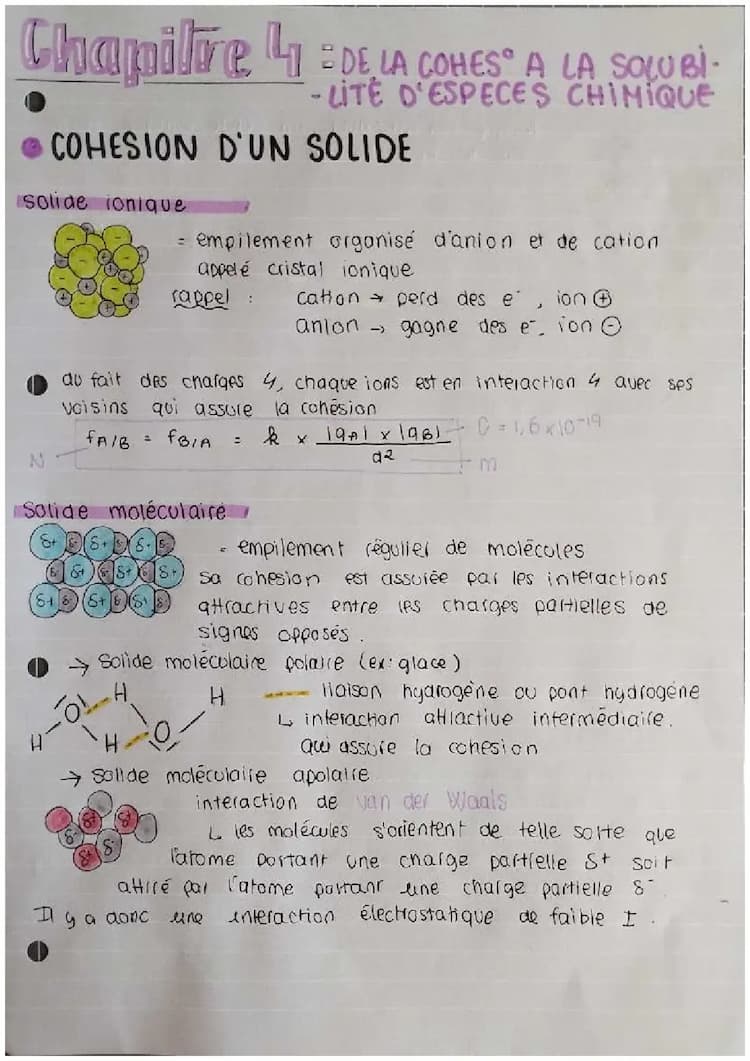 Chapitre 4 : DE LA COHES° A LA SOLUBI-
-LITÉ D'ESPECES CHIMIQUE
COHESION D'UN SOLIDE
solide ionique
= empilement organisé d'anion et de cation
appelé cristal ionique
rappel : cation → perd des e⁻, ion ⊕
anion → gagne des e⁻, ion ⊖
du fait des charges 4, chaque ions est en interaction 4 avec ses
voisins qui assure la cohésion
fA/B = fB/A = k × |qA| × |qB| / d²
C = 1,6 × 10⁻¹⁹
N
m
Solide moléculaire
= empilement régulier de molécules
sa cohesion est assurée par les interactions
attractives entre les charges partielles de
signes opposés.
→ Solide moléculaire polaire (ex: glace)
liaison hydrogène ou pont hydrogène
↳ interaction attractive intermédiaire.
qui assure la cohesion
H O H H O H
→ Solide moléculaire apolaire
interaction de van der Waals
↳ les molécules s'orientent de telle sorte que
l'atome portant une charge partielle δ+ soit
attiré par l'atome portant une charge partielle δ⁻
Il y a donc une interaction électrostatique de faible I.